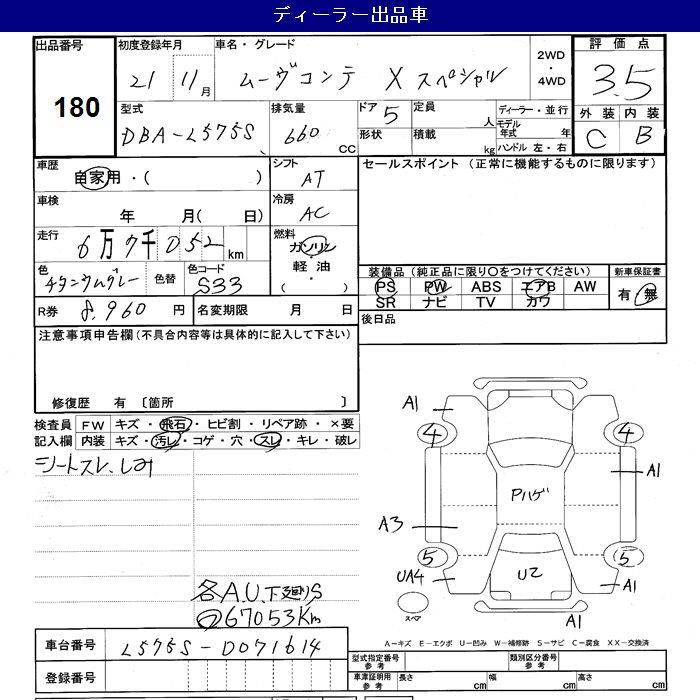 ディーラー出品車
出品番号 初度登録年月 車名・グレード 2WD・4WD 評価点
180
21 11月 ムーヴコンテ Xスペシャル
3.5
型式 排気量 ドア 5 定員 人 ディーラー・並行 外装 内装
DBA-L575S 660 CC 形状 積載 kg モデル年式 年 C B
ハンドル 左・右
車歴 シフト セールスポイント（正常に機能するものに限ります）
自家用・( ) AT
車検 冷房
年 月( 日) AC
走行 燃料
6万7千052km ガソリン
軽油
・( )
色 色替 色コード
チタニウムグレー S33
装備品（純正品に限り○をつけてください） 新車保証書
PS PW ABS エアB AW 有・無
SR ナビ TV カワ
R券 8,960円 名変期限 月 日
後日品
注意事項申告欄(不具合内容等は具体的に記入して下さい)
修復歴 有 〔箇所 〕
検査員 FW キズ・飛石・ヒビ割・リペア跡・×要
記入欄 内装 キズ・汚レ・コゲ・穴・スレ・キレ・破レ
シートスレ、しみ
A1
4 4
A1
Pハゲ
A3
5 5
UA4 U2 A1
スペア
A1
各A.U.下廻りS
67053Km
A－キズ E－エクボ U－凹み W－補修跡 S－サビ C－腐食 XX－交換済
車台番号 L575S-0071614
型式指定番号 参考 類別区分番号 参考
登録番号
車庫証明用 参考 長さ cm 幅 cm 高さ cm